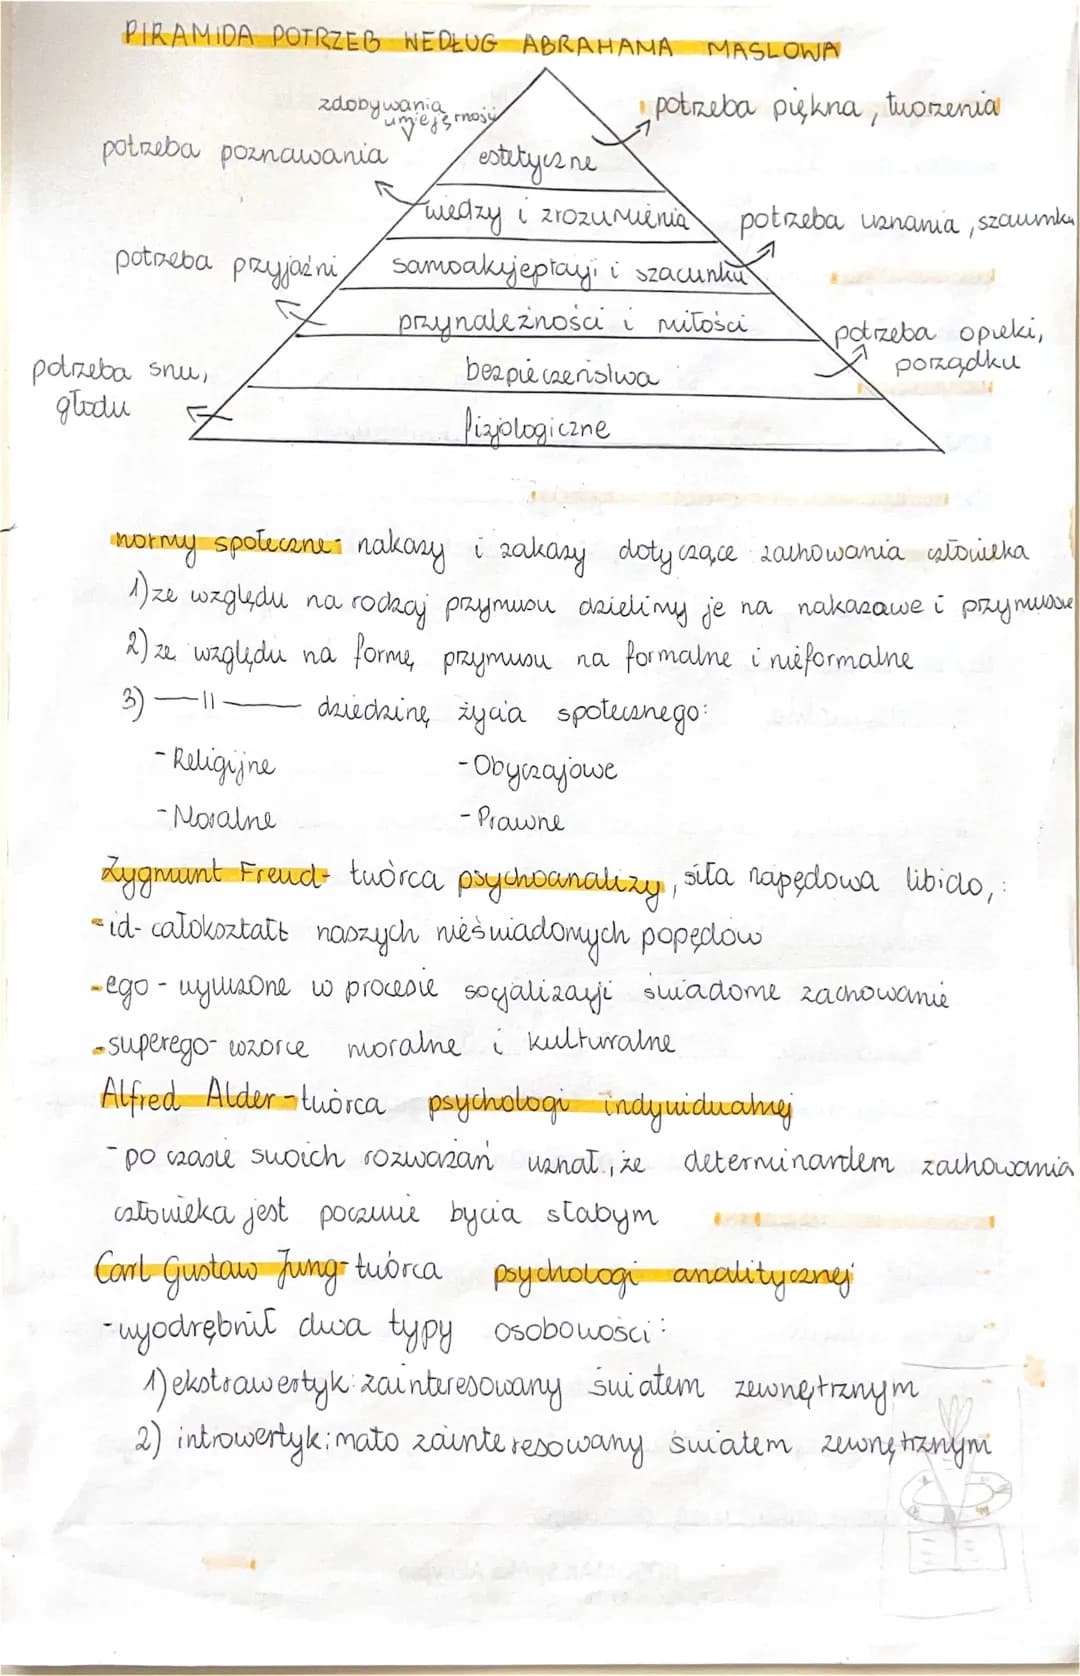 PIRAMIDA POTRZEB WEDŁUG ABRAHAMA MASLOWA
zdobywania
umiejętności
potrzeba piękna, tworzenia
potrzeba poznawania
estetyczne
wiedzy i zrozumienia
potrzeba uznania, szacunku
potrzeba przyjaźni
samoakcjeptacji i szacunku
przynależności i miłości
potrzeba opieki,
porządku
potrzeba snu,
głodu
bezpieczeństwa
fizjologiczne
normy społeczne- nakazy i zakazy dotyczące zachowania człowieka
1) ze względu na rodzaj przymusu dzielimy je na nakazowe i przymusowe
2) ze względu na formę przymusu na formalne i nieformalne
3) —||— dziedzinę życia społecznego:
- Religijne - Obyczajowe
- Moralne - Prawne
Zygmunt Freud- twórca psychoanalizy, siła napędowa libido,:
-id- całokształt naszych nieświadomych popędów
-ego - wyuczone w procesie socjalizacji świadome zachowanie
-superego- wzorce moralne i kulturalne
Alfred Alder- twórca psychologi indywidualnej
- po czasie swoich rozważań uznał, że determinantem zachowania
człowieka jest poczucie bycia słabym
Carl Gustaw Jung- twórca psychologi analitycznej
- wyodrębnił dwa typy osobowości:
1) ekstrawertyk: zainteresowany światem zewnętrznym
2) introwertyk: mało zainteresowany światem zewnętrznym